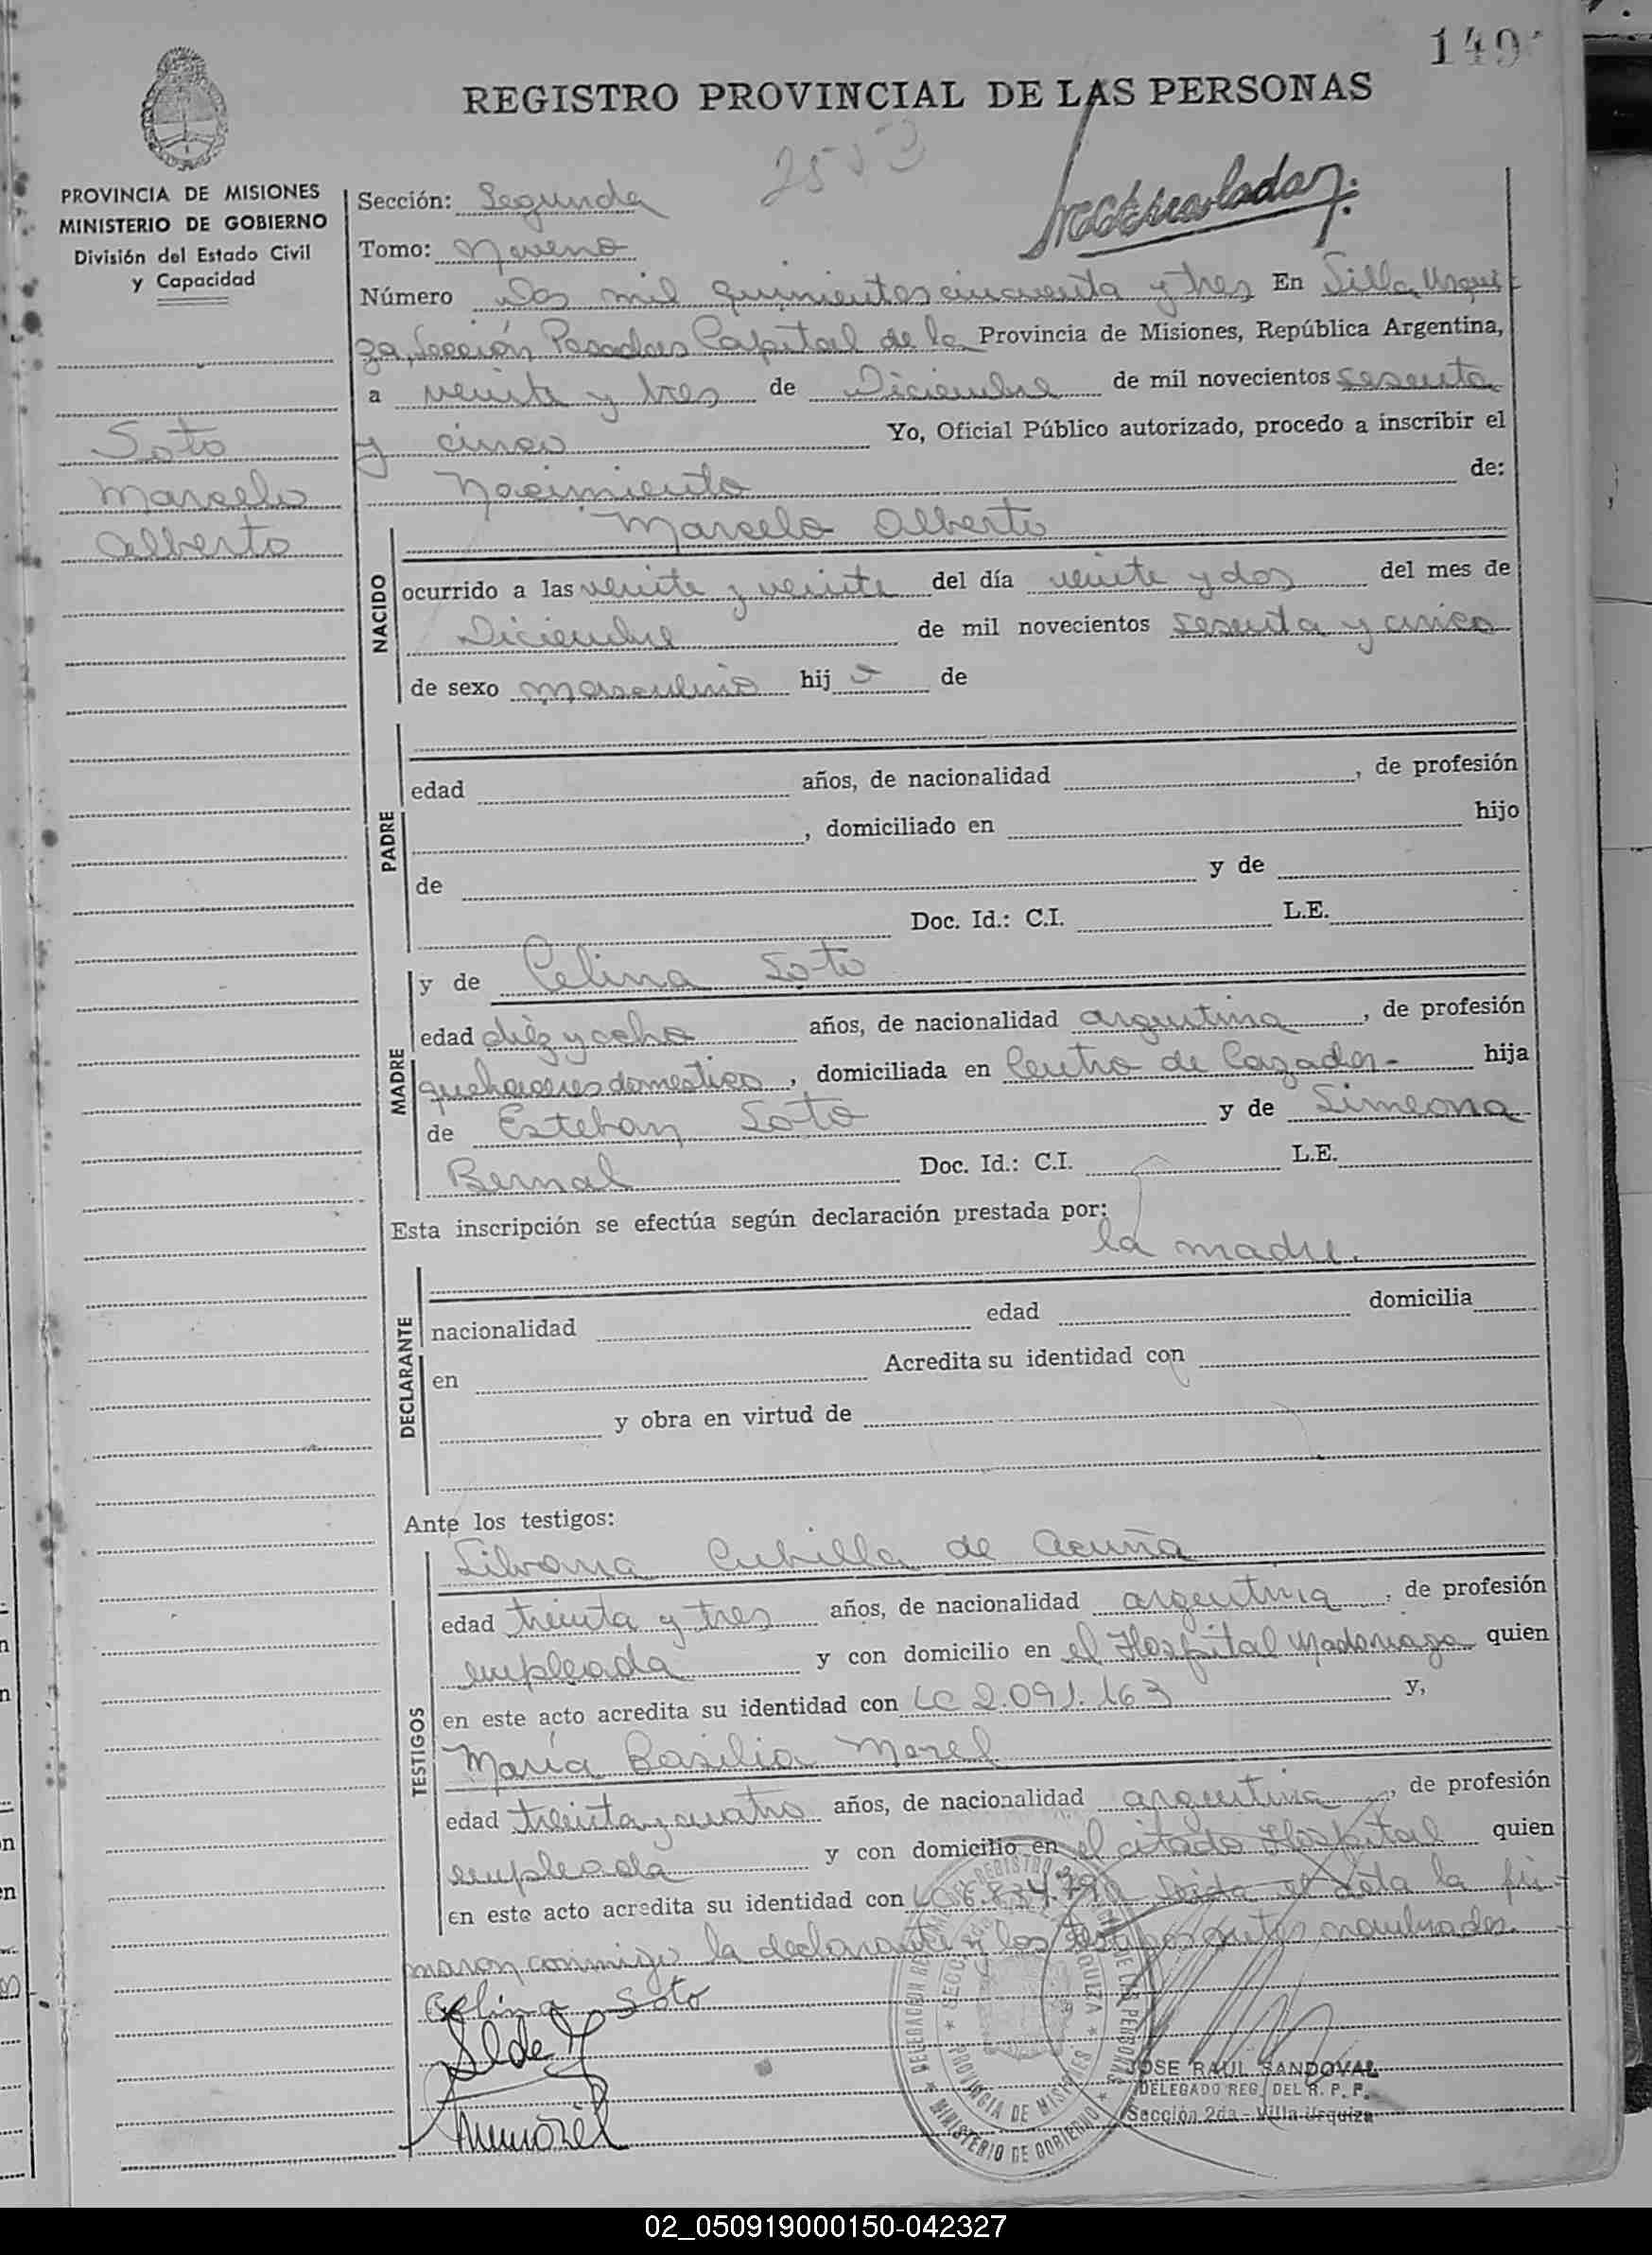 149
REGISTRO PROVINCIAL DE LAS PERSONAS
2553
PROVINCIA DE MISIONES
MINISTERIO DE GOBIERNO
División del Estado Civil
y Capacidad
Soto
Marcelo
Alberto
Sección: Segunda
Tomo: Noveno
Número Dos mil quinientos cincuenta y tres En Villa Urqui
za, Sección Posadas Capital de la Provincia de Misiones, República Argentina,
a veinte y tres de Diciembre de mil novecientos sesenta
y cinco Yo, Oficial Público autorizado, procedo a inscribir el
Nacimiento de:
Marcelo Alberto
NACIDO
ocurrido a las veinte y veinte del día veinte y dos del mes de
Diciembre de mil novecientos sesenta y cinco
de sexo masculino hijo de
PADRE
edad años, de nacionalidad , de profesión
, domiciliado en hijo
de y de
Doc. Id.: C.I. L.E.
MADRE
y de Celina Soto
edad diez y ocho años, de nacionalidad argentina, de profesión
quehaceres domesticos, domiciliada en Centro de Cazador- hija
de Esteban Soto y de Simeona
Bernal Doc. Id.: C.I. L.E.
Esta inscripción se efectúa según declaración prestada por:
la madre.
DECLARANTE
nacionalidad edad domicilia
en Acredita su identidad con
y obra en virtud de
Ante los testigos:
TESTIGOS
Silvana Cubilla de Acuña
edad treinta y tres años, de nacionalidad argentina, de profesión
empleada y con domicilio en el Hospital Madariaga quien
en este acto acredita su identidad con LC 2.091.163 y,
María Basilia Morel
edad treinta y cuatro años, de nacionalidad argentina, de profesión
empleada y con domicilio en el citado Hospital quien
en este acto acredita su identidad con Leida el acta la fir-
maron conmigo la declarante y los testigos antes nombrados.
Celina Soto
JOSE RAUL SANDOVAL
DELEGADO REG. DEL R. P. P.
Sección 2da - Villa Urquiza
PROVINCIA DE MISIONES
MINISTERIO DE GOBIERNO
02_050919000150-042327